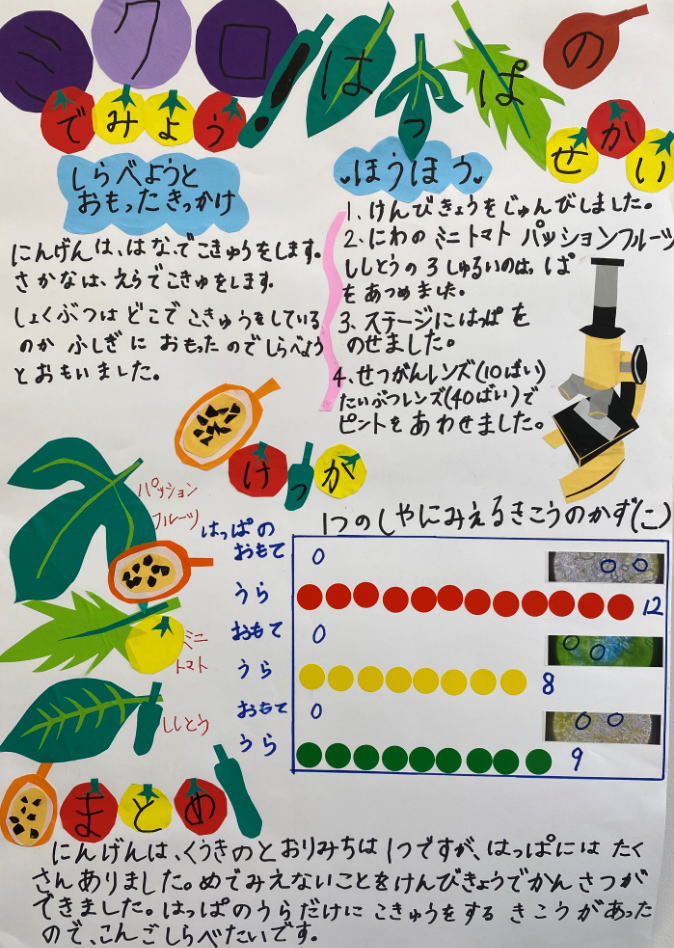 ミクロはっぱの
でみようせかい
しらべようと
おもったきっかけ
にんげんは、はなでこきゅうをします。
さかなは、えらでこきゅをします。
しょくぶつはどこでこきゅうをしている
のかふしぎにおもったのでしらべよう
とおもいました。
ほうほう
1、けんびきょうをじゅんびしました。
2、にわのミニトマト パッションフルーツ
ししとうの3しゅるいのはっぱ
をあつめました。
3、ステージにはっぱを
のせました。
4、せつがんレンズ(10ばい)
たいぶつレンズ(40ばい)で
ピントをあわせました。
けっか
1つのしやにみえるきこうのかず(こ)
パッション
フルーツ
はっぱの
おもて 0
うら 12
ミニ
トマト
おもて 0
うら 8
ししとう
おもて 0
うら 9
まとめ
にんげんは、くうきのとおりみちは1つですが、はっぱにはたく
さんありました。めでみえないことをけんびきょうでかんさつが
できました。はっぱのうらだけにこきゅうをするきこうがあった
ので、こんごしらべたいです。